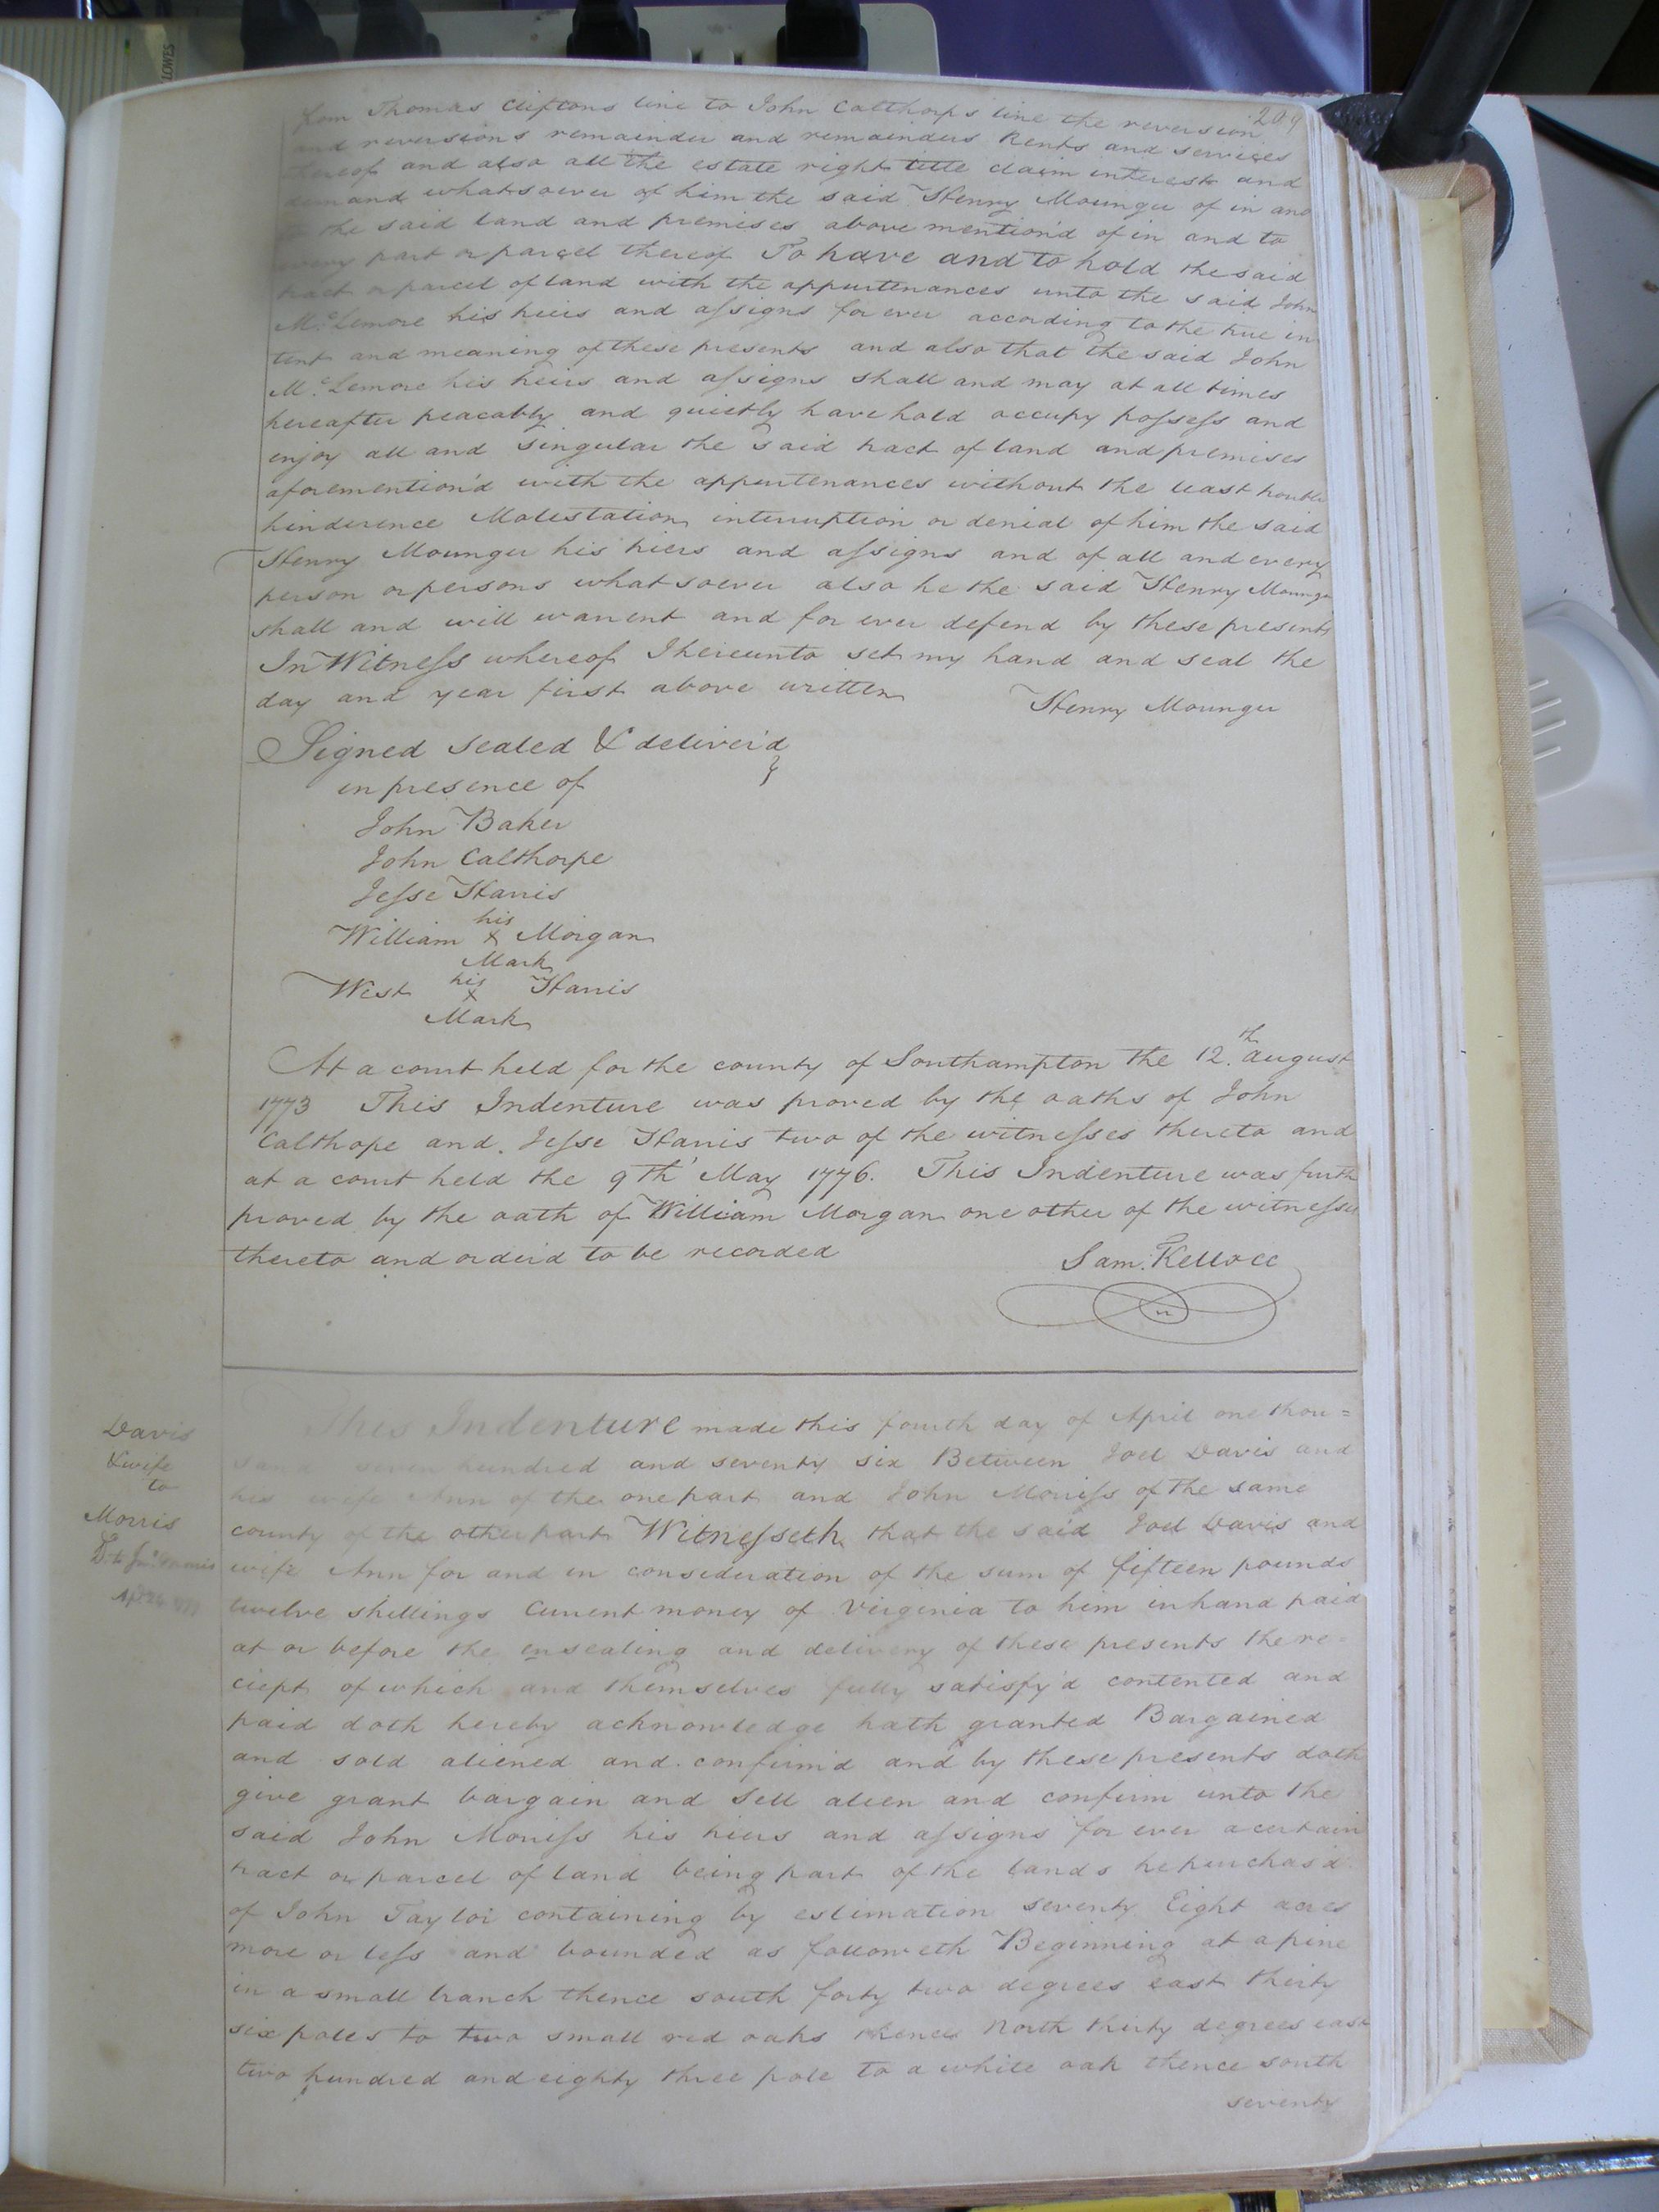 LOWES
209
from Thomas Cliftons line to John Calthorps line the reversion
and reversions remainder and remainders Rents and services
thereof and also all the estate right title claim interest and
demand whatsoever of him the said Henry Mounger of in and
to the said land and premises above mention'd of in and to
every part or parcel thereof To have and to hold the said
tract or parcel of land with the appurtenances unto the said John
Mc.Lemore his heirs and assigns for ever according to the true in
tent and meaning of these presents and also that the said John
Mc.Lemore his heirs and assigns shall and may at all times
hereafter peacably and quietly have hold occupy possess and
enjoy all and singular the said tract of land and premises
aforemention'd with the appurtenances without the least trouble
hinderence Molestation interruption or denial of him the said
Henry Mounger his hiers and assigns and of all and every
person or persons whatsoever also he the said Henry Mounger
shall and will warrent and for ever defend by these presents
In Witness whereof I hereunto set my hand and seal the
day and year first above written Henry Mounger
Signed sealed & deliver'd
in presence of
John Baker
John Calthorpe
Jesse Harris
his
William x Morgan
Mark
West his x Harris
Mark
At a court held for the county of Southampton the 12.th august
1773 This Indenture was proved by the oaths of John
Calthope and Jesse Harris two of the witnesses thereto and
at a court held the 9th May 1776. This Indenture was furth
proved by the oath of William Morgan one other of the witnesses
thereto and order'd to be recorded Sam: Kello CC
Davis
& wife
to
Morris
This Indenture made this fourth day of April one thou=
sand seven hundred and seventy six Between Joel Davis and
his wife Ann of the one part and John Morriss of the same
county of the other part Witnesseth that the said Joel Davis and
wife Ann for and in consideration of the sum of fifteen pounds
twelve shillings Current money of Virginia to him in hand paid
at or before the ensealing and delivery of these presents the re=
ciept of which and themselves fully satisfy'd contented and
paid doth hereby acknowledge hath granted Bargained
and sold aliened and confirm'd and by these presents doth
give grant bargain and Sell alien and confirm unto the
said John Morriss his hiers and assigns for ever a certain
tract or parcel of land being part of the lands he purchas'd
of John Taylor containing by estimation seventy Eight acres
more or less and bounded as followeth Beginning at a pine
in a small branch thence south forty two degrees east thirty
six poles to two small red oaks thence North thirty degrees east
two hundred and eighty three pole to a white oak thence south
seventy